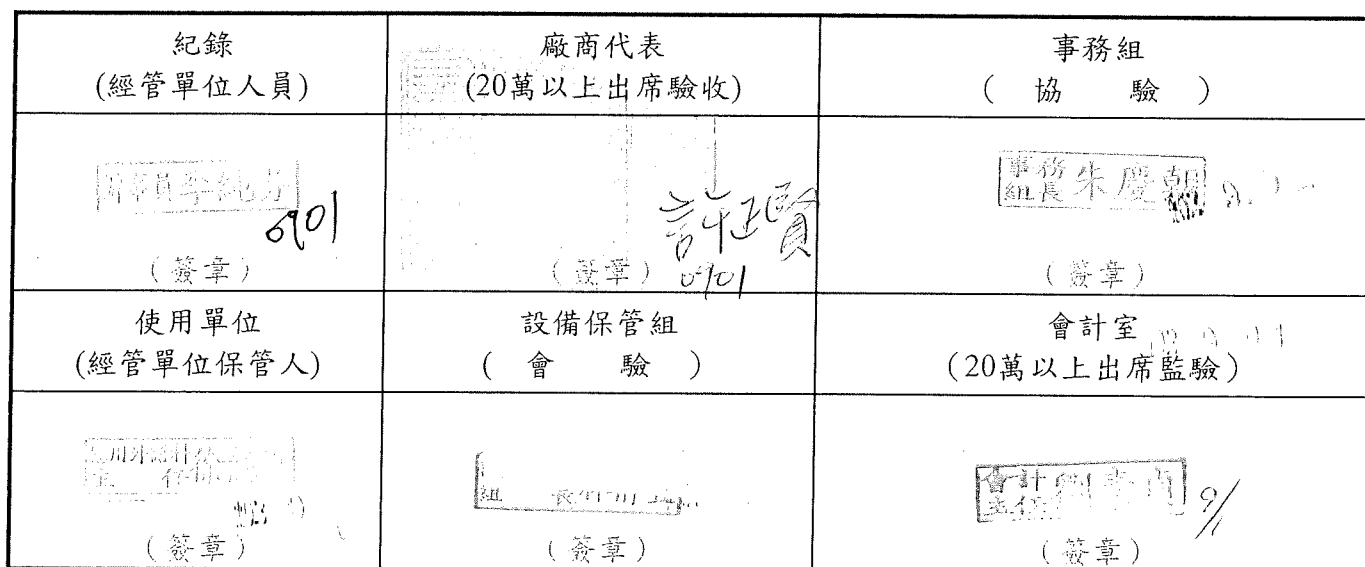 紀錄
(經管單位人員)
廠商代表
(20萬以上出席驗收)
事務組
( 協 驗 )
0901
(簽章)
許正賢
(簽章) 0901
事務
組長 朱慶朝
(簽章)
使用單位
(經管單位保管人)
設備保管組
( 會 驗 )
會計室
(20萬以上出席監驗)
(簽章)
組 長
(簽章)
會計
主任
9/1
(簽章)